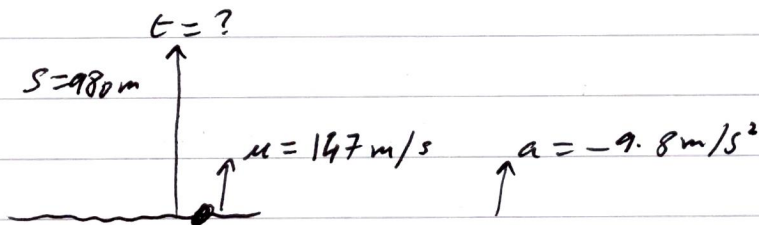 t = ?
S=980m
u = 147 m/s
a = -9.8m/s²